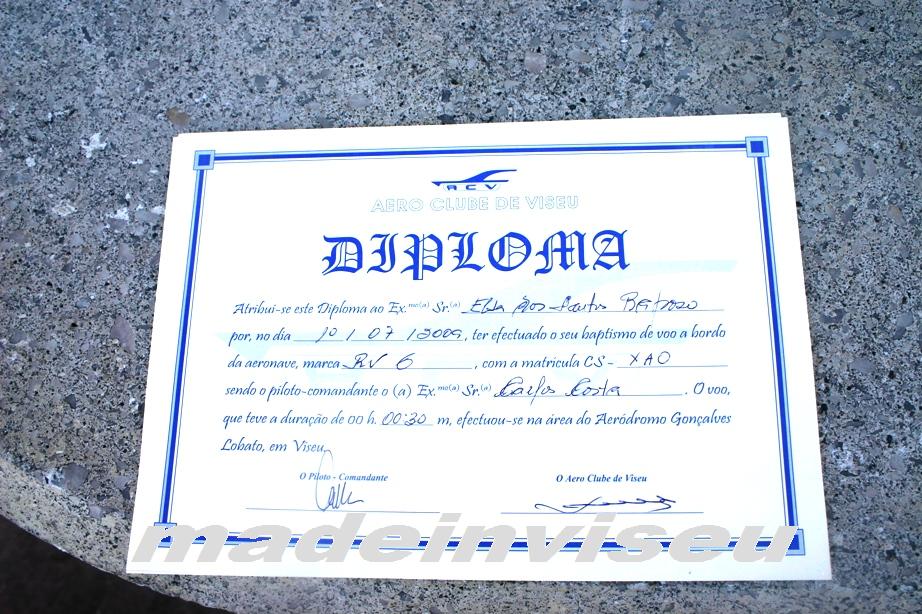 ACV
AERO CLUBE DE VISEU
DIPLOMA
Atribui-se este Diploma ao Ex.mo(a) Sr.(a) Elsa dos Santos Barroso
por, no dia 10 / 07 / 2009, ter efectuado o seu baptismo de voo a bordo
da aeronave, marca RV 6, com a matricula CS- XAO
sendo o piloto-comandante o (a) Ex.mo(a) Sr.(a) Carlos Costa. O voo,
que teve a duração de 00 h. 00:30 m, efectuou-se na área do Aeródromo Gonçalves
Lobato, em Viseu
O Piloto - Comandante O Aero Clube de Viseu
madeinviseu